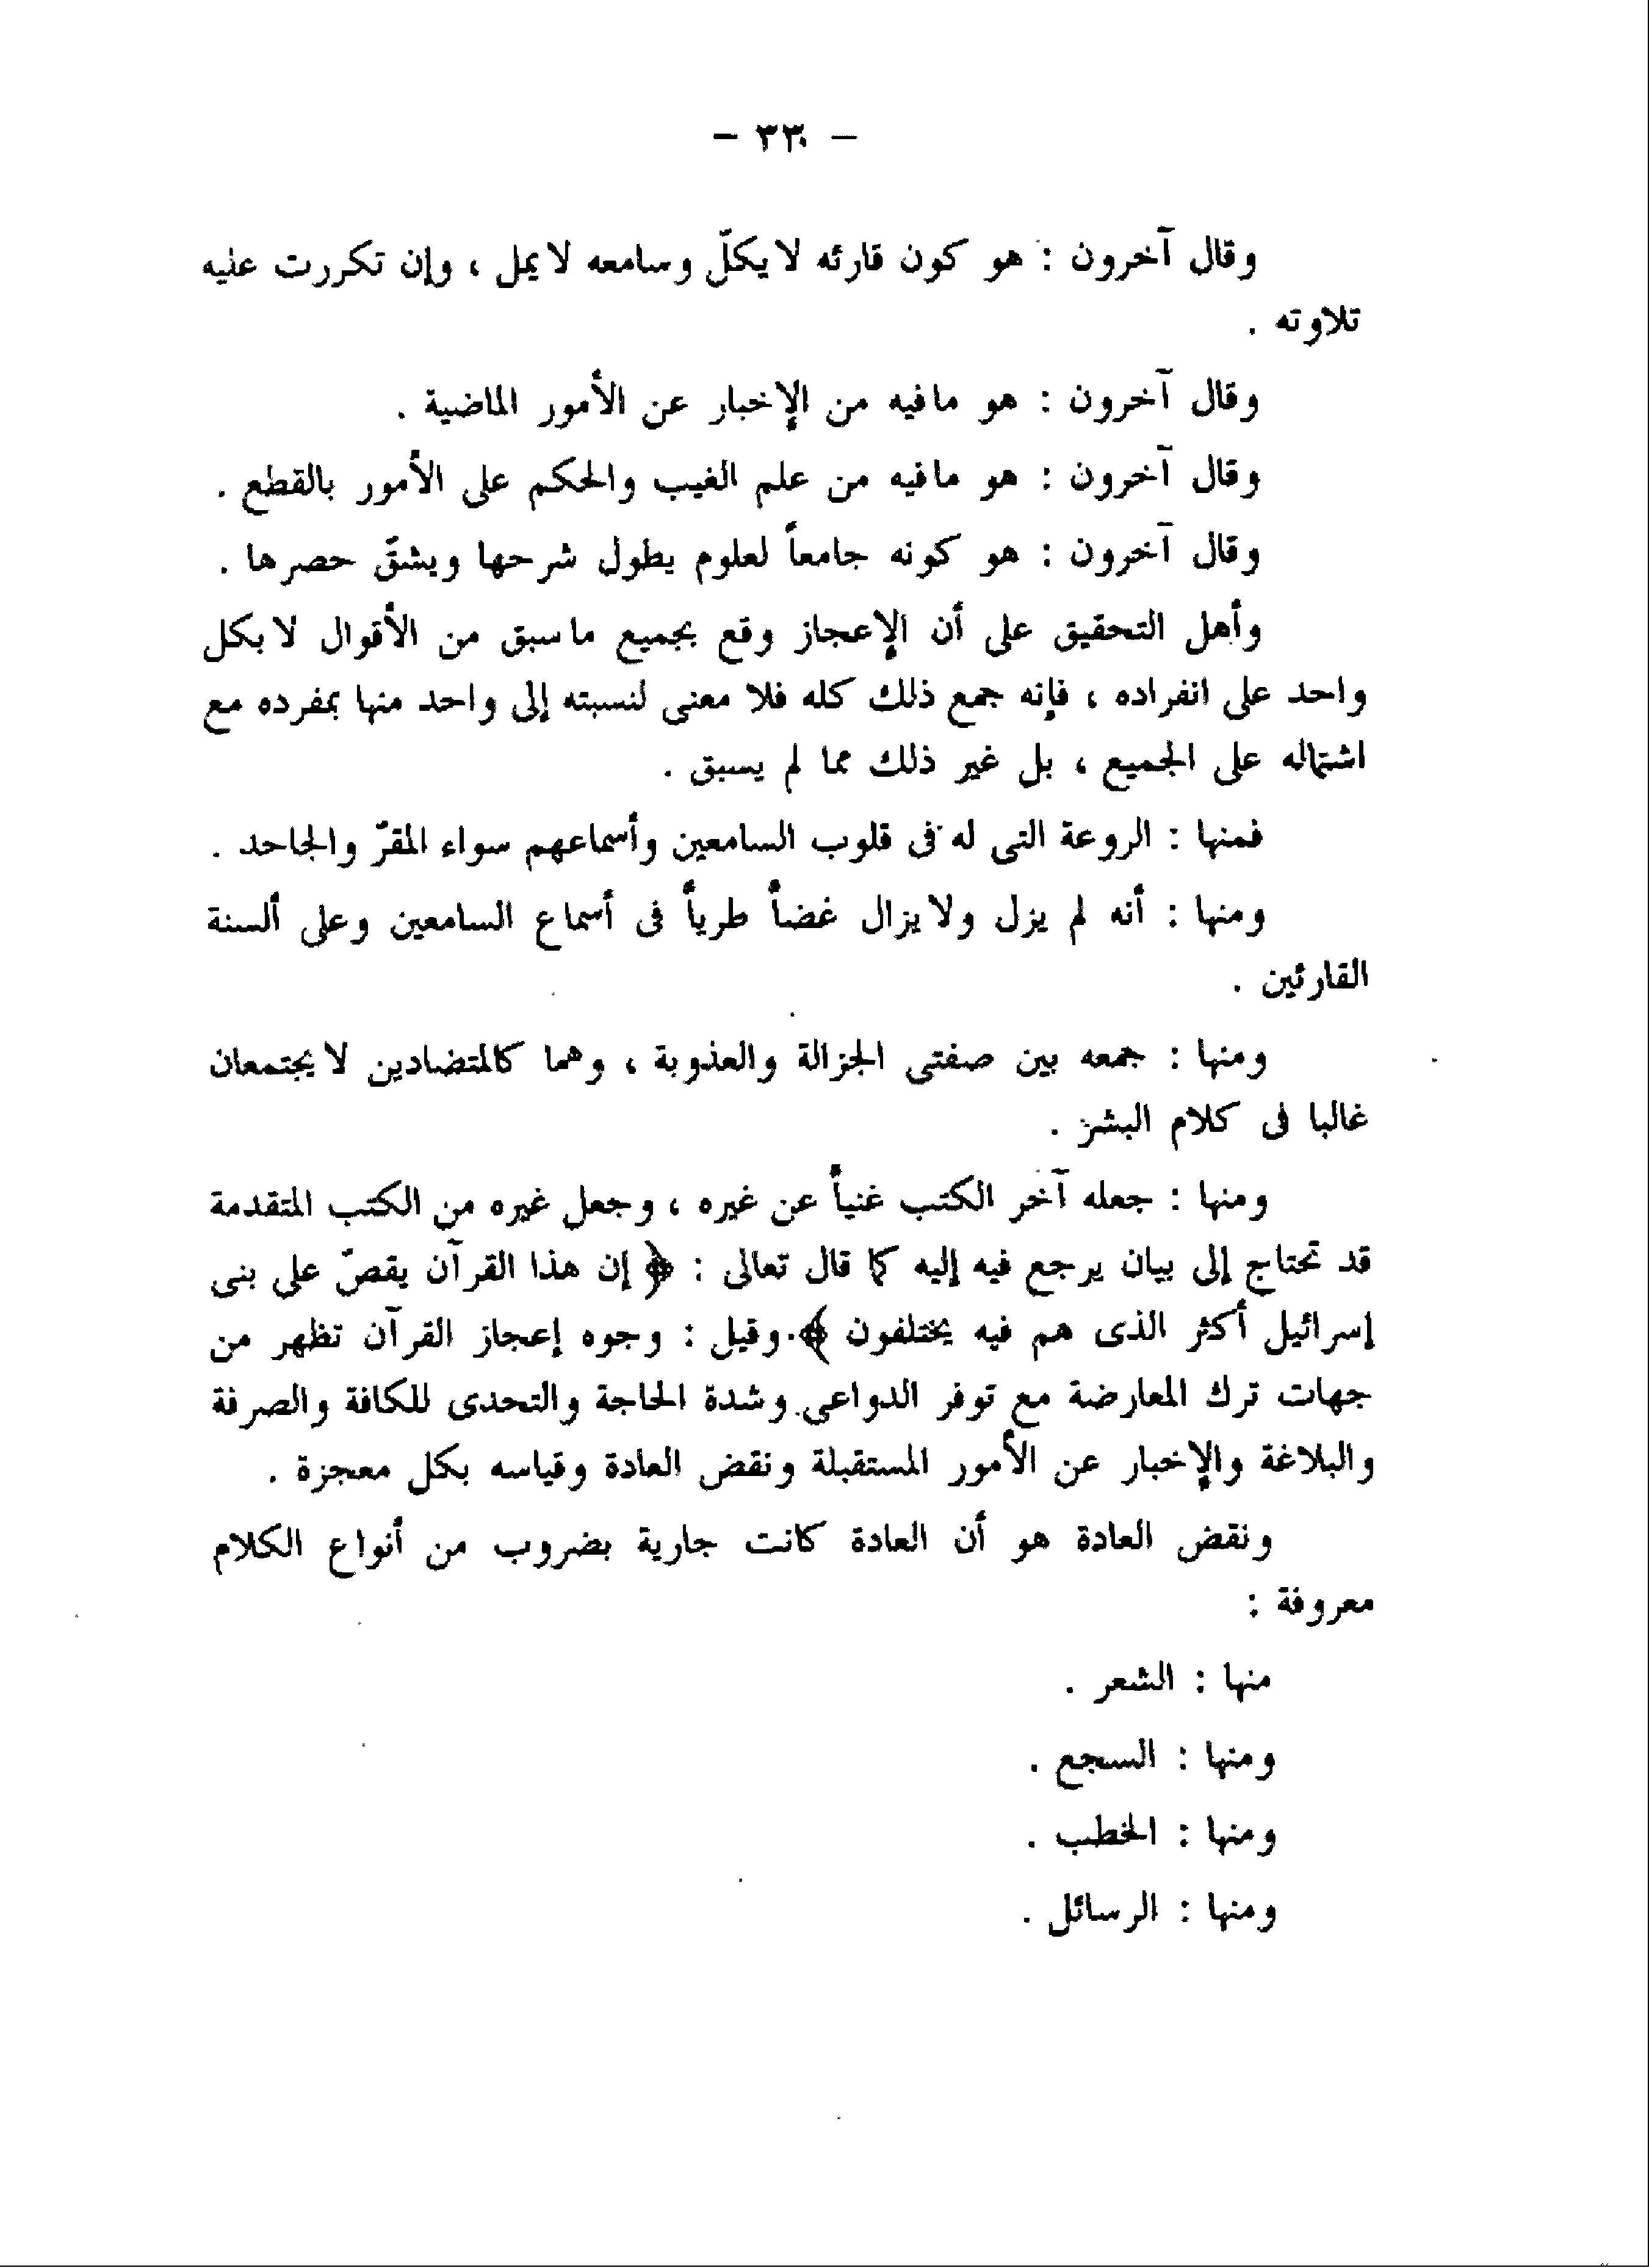 - ٣٣٠ -
وقال آخرون : هو كون قارئه لا يكلّ وسامعه لا يمل ، وإن تكررت عليه
تلاوته .
وقال آخرون : هو ما فيه من الإخبار عن الأمور الماضية .
وقال آخرون : هو ما فيه من علم الغيب والحكم على الأمور بالقطع .
وقال آخرون : هو كونه جامعاً لعلوم يطول شرحها ويشقّ حصرها .
وأهل التحقيق على أن الإعجاز وقع بجميع ما سبق من الأقوال لا بكل
واحد على انفراده ، فإنه جمع ذلك كله فلا معنى لنسبته إلى واحد منها بمفرده مع
اشتماله على الجميع ، بل غير ذلك مما لم يسبق .
فمنها : الروعة التى له فى قلوب السامعين وأسماعهم سواء المقرّ والجاحد .
ومنها : أنه لم يزل ولا يزال غضاً طرياً فى أسماع السامعين وعلى ألسنة
القارئين .
ومنها : جمعه بين صفتى الجزالة والعذوبة ، وهما كالمتضادين لا يجتمعان
غالبا فى كلام البشر .
ومنها : جعله آخر الكتب غنياً عن غيره ، وجعل غيره من الكتب المتقدمة
قد تحتاج إلى بيان يرجع فيه إليه كما قال تعالى : ﴿ إن هذا القرآن يقصّ على بنى
إسرائيل أكثر الذى هم فيه يختلفون ﴾. وقيل : وجوه إعجاز القرآن تظهر من
جهات ترك المعارضة مع توفر الدواعى وشدة الحاجة والتحدى للكافة والصرفة
والبلاغة والإخبار عن الأمور المستقبلة ونقض العادة وقياسه بكل معجزة .
ونقض العادة هو أن العادة كانت جارية بضروب من أنواع الكلام
معروفة :
منها : الشعر .
ومنها : السجع .
ومنها : الخطب .
ومنها : الرسائل .